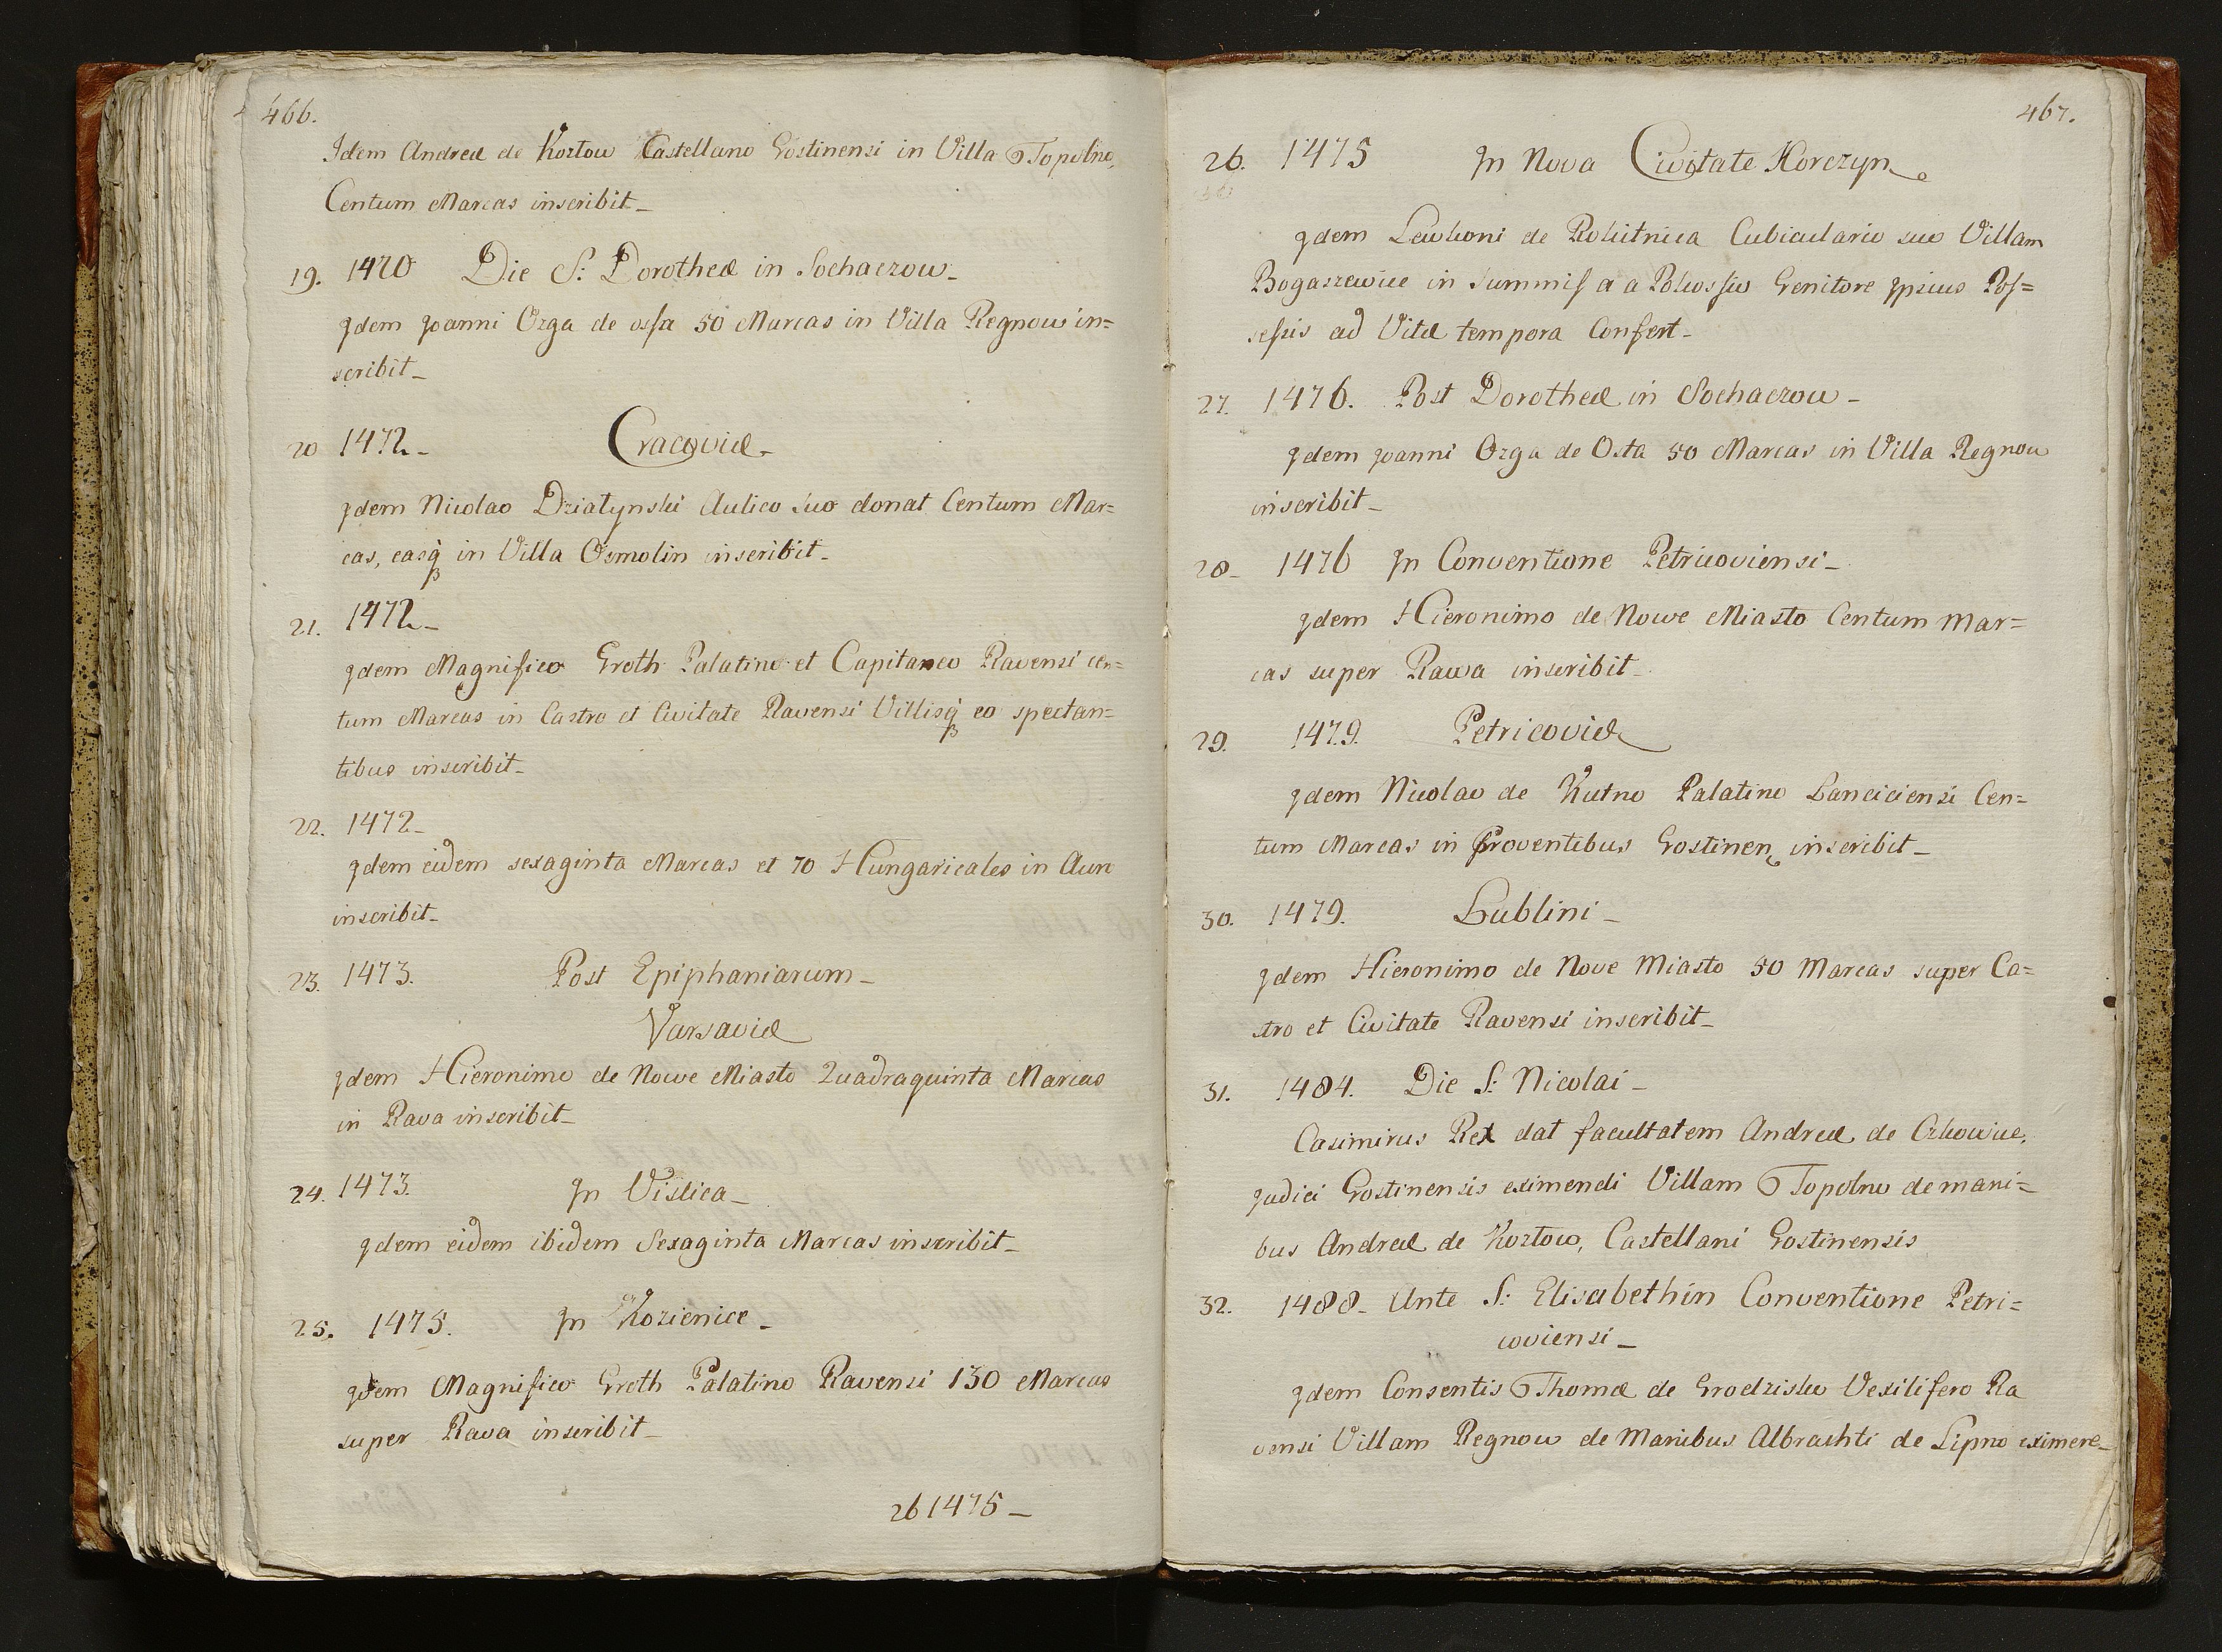 466.
Idem Andreæ de Kostow Castellano Gostinensi in Villa Topolno,
Centum Marcas inscribit_
19. 1470 Die S: Dorotheæ in Sochaczow_
Idem Joanni Ozga de ossa 50 Marcas in Villa Regnow in=
scribit_
20 1472_ Cracoviæ_
Idem Nicolao Dzialynski Aulico suo donat Centum Mar=
cas, easq in Villa Osmolin inscribit_
21. 1472_
Idem Magnifico Groth Palatino et Capitaneo Ravensi cen=
tum Marcas in Castro et Civitate Ravensi Villisq eo spectan=
tibus inscribit_
22. 1472_
Idem eidem sexaginta Marcas et 70 Hungaricales in Auro
inscribit_
23. 1473. Post Epiphaniarum_
Varsaviæ
Idem Hieronimo de Nowe Miasto Quadraquinta Marcas
in Rava inscribit_
24. 1473. In Vislica_
Idem eidem ibidem Sexaginta Marcas inscribit_
25. 1475. In Kozienice_
Idem Magnifico Groth Palatino Ravensi 130 Marcas
super Rava inscribit_
26 1475_
467.
26. 1475 In Nova Civitate Korczyn
Idem Lewkoni de Rokitnica Cubiculario suo Villam
Bogaszewice in summis a a Genitore Ipsius Pos=
sessis ad Vitæ tempora Confert_
27. 1476. Post Dorotheæ in Sochaczow_
Idem Joanni Ozga de Osta 50 Marcas in Villa Regnow
inscribit_
28_ 1476 In Conventione Petricoviensi_
Idem Hieronimo de Nowe Miasto Centum Mar=
cas super Rawa inscribit_
29. 1479. Petricoviæ
Idem Nicolao de Kutno Palatino Lanciciensi Cen=
tum Marcas in Proventibus Gostinen inscribit_
30. 1479. Lublini_
Idem Hieronimo de Nove Miasto 50 Marcas super Ca=
stro et Civitate Ravensi inscribit_
31. 1484. Die S: Nicolai_
Casimirus Rex dat facultatem Andreæ de
Judici Gostinensis eximendi Villam Topolno de mani=
bus Andreæ de Kostow, Castellani Gostinensis
32. 1488_ Ante S: Elisabeth in Conventione Petri=
coviensi_
Idem Consentis Thomæ de Grodzisko Vexilifero Ra
vensi Villam Regnow de Manibus Albrachti de Lipno eximere_